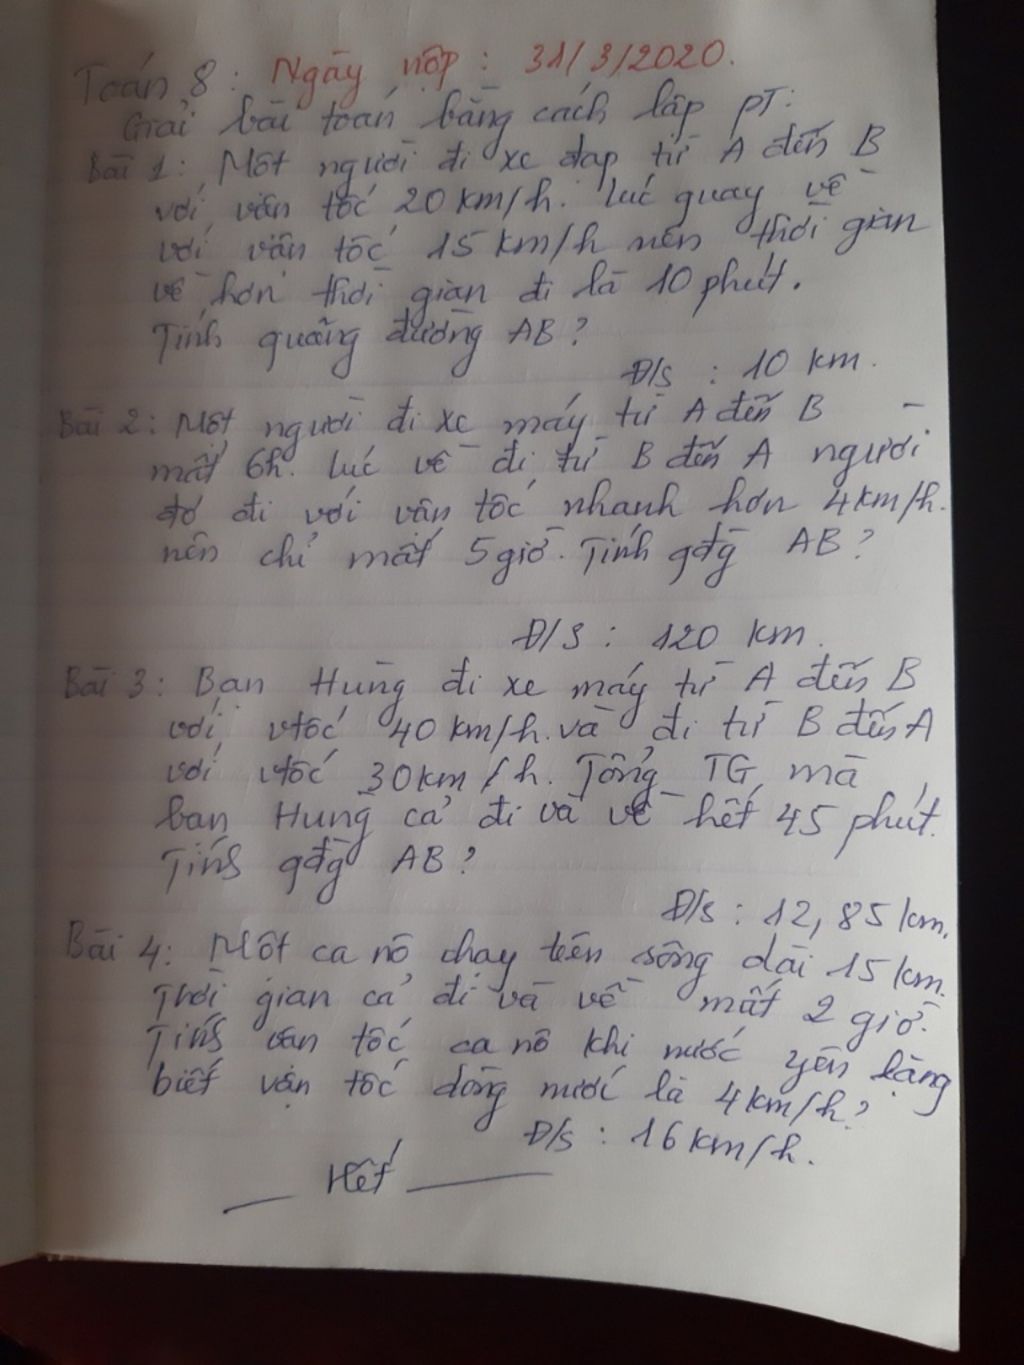 Toán 8: Ngày nộp: 31/3/2020.
Giải bài toán bằng cách lập PT:
Bài 1: Một người đi xe đạp từ A đến B
với vận tốc 20 km/h. lúc quay về
với vận tốc 15 km/h nên thời gian
về hơn thời gian đi là 10 phút.
Tính quãng đường AB?
Đ/s: 10 km.
Bài 2: Một người đi xe máy từ A đến B
mất 6h. lúc về đi từ B đến A người
đó đi với vận tốc nhanh hơn 4km/h.
nên chỉ mất 5 giờ. Tính qđg AB?
Đ/S: 120 km.
Bài 3: Bạn Hùng đi xe máy từ A đến B
với vtốc 40 km/h. và đi từ B đến A
với vtốc 30km/h. Tổng TG mà
bạn Hùng cả đi và về hết 45 phút.
Tính qđg AB?
Đ/s: 12,85 km.
Bài 4: Một ca nô chạy trên sông dài 15 km.
Thời gian cả đi và về mất 2 giờ.
Tính vận tốc ca nô khi nước yên lặng
biết vận tốc dòng nước là 4km/h?
Đ/s: 16 km/h.
Hết